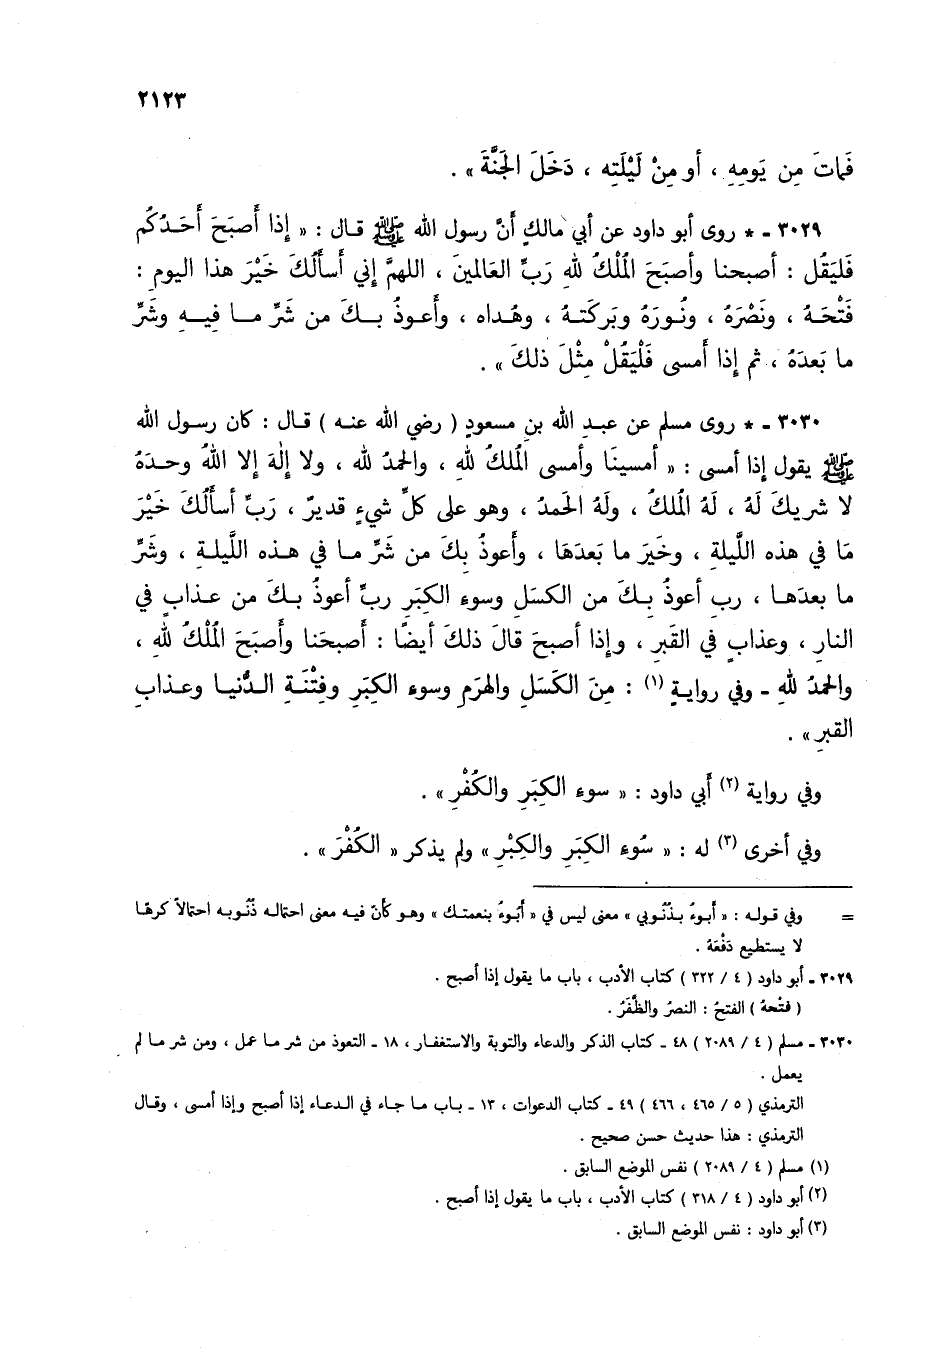 ٢١٢٣
فَماتَ مِن يَومِهِ ، أو مِنْ لَيْلَتِه ، دَخَلَ الجَنَّةَ » .
٣٠٢٩ - * روى أبو داود عن أبي مالكٍ أنَّ رسول الله ﷺ قال : « إذا أَصبَحَ أَحَدُكُم
فَليَقُل : أصبحنا وأصبَحَ المُلْكُ للهِ رَبِّ العَالمينَ ، اللهمَّ إني أَسأَلُكَ خَيْرَ هذا اليومِ :
فَتْحَهُ ، ونَصْرَهُ ، ونُورَهُ وبَركَتهُ ، وهُداه ، وأَعوذُ بكَ من شَرِّ ما فِيهِ وشَرِّ
ما بَعدَهُ ، ثم إذا أَمسى فَلْيَقُلْ مِثْلَ ذلكَ » .
٣٠٣٠ - * روى مسلم عن عبدِ الله بنِ مسعودٍ ( رضي الله عنه ) قال : كان رسول الله
ﷺ يقول إذا أمسى : « أمسينَا وأمسى المُلكُ للهِ ، والحمدُ لله ، ولا إلٰهَ إلا اللهُ وحدَهُ
لا شريكَ لَهُ ، لَهُ المُلكُ ، ولَهُ الحَمدُ ، وهو على كلِّ شيءٍ قديرٌ ، رَبِّ أسأَلُكَ خَيْرَ
مَا في هذه اللَّيلةِ ، وخَيرَ ما بَعدَهَا ، وأَعوذُ بِكَ من شَرِّ ما في هذه اللَّيلةِ ، وشَرِّ
ما بعدَها ، رب أعوذُ بِكَ من الكسَلِ وسوءِ الكِبَرِ ربِّ أعوذُ بكَ من عذابٍ في
النارِ ، وعذابٍ في القَبرِ ، وإذا أصبحَ قالَ ذلكَ أيضًا : أَصبحَنا وأَصبَحَ المُلْكُ للهِ ،
والحمدُ للهِ - وفي روايةٍ (١) : مِنَ الكَسَلِ والهرَمِ وسوءِ الكِبَرِ وفِتْنَةِ الدُّنيا وعذابِ
القبرِ » .
وفي رواية (٢) أبي داود : « سوءِ الكِبَرِ والكُفْرِ » .
وفي أخرى (٣) له : « سُوءِ الكِبَرِ والكِبْرِ » ولم يذكر « الكُفْرَ » .
= وفي قوله : « أبوءُ بذُنُوبي » معنى ليس في « أَبُوءُ بنعمتك » وهو كأنّ فيه معنى احتماله ذُنُوبه احتمالاً كرهًا
لا يستطيع دَفْعَهُ .
٣٠٢٩ - أبو داود ( ٤ / ٣٢٢ ) كتاب الأدب ، باب ما يقول إذا أصبح .
( فتْحهُ ) الفتحُ : النصرُ والظَّفَرُ .
٣٠٣٠ - مسلم ( ٤ / ٢٠٨٩ ) ٤٨ - كتاب الذكر والدعاء والتوبة والاستغفار ، ١٨ - التعوذ من شر ما عمل ، ومن شر ما لم
يعمل .
الترمذي ( ٥ / ٤٦٥ ، ٤٦٦ ) ٤٩ - كتاب الدعوات ، ١٣ - باب ما جاء في الدعاء إذا أصبح وإذا أمسى ، وقال
الترمذي : هذا حديث حسن صحيح .
(١) مسلم ( ٤ / ٢٠٨٩ ) نفس الموضع السابق .
(٢) أبو داود ( ٤ / ٣١٨ ) كتاب الأدب ، باب ما يقول إذا أصبح .
(٣) أبو داود : نفس الموضع السابق .